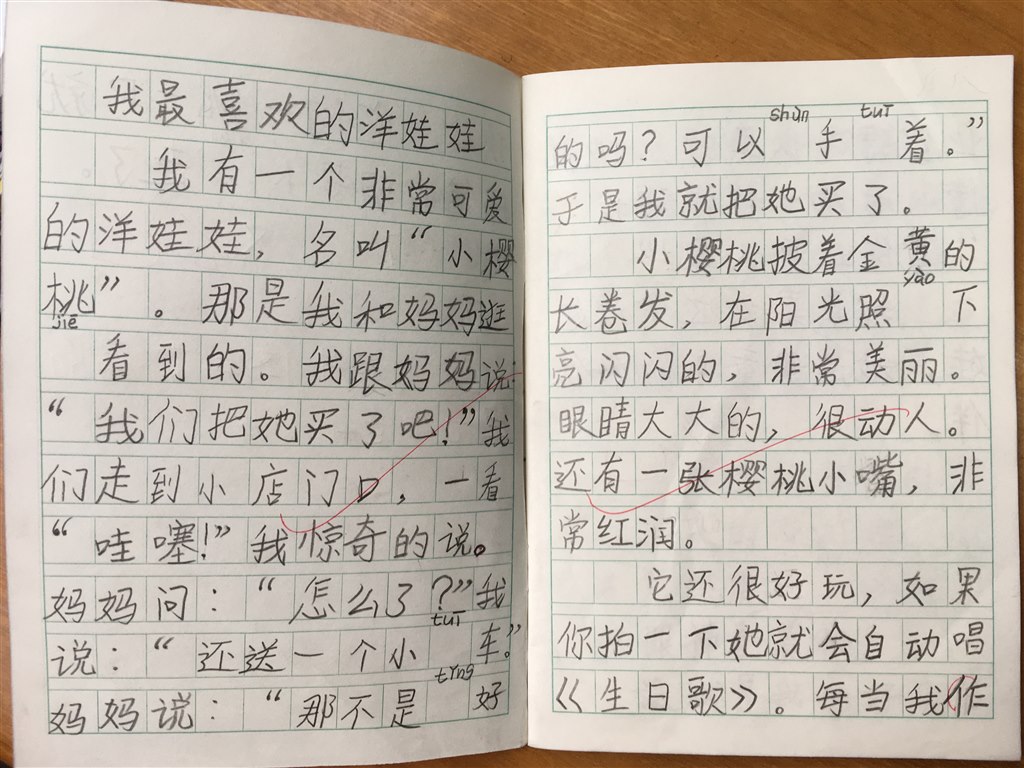 我最喜欢的洋娃娃
我有一个非常可爱
的洋娃娃，名叫“小樱
桃”。那是我和妈妈逛
jiē看到的。我跟妈妈说
“我们把她买了吧！”我
们走到小店门口，一看
“哇噻！”我惊奇的说。
妈妈问：“怎么了？”我
说：“还送一个小tuī车。”
妈妈说：“那不是tǐng好
的吗？可以shùn手tuī着。”
于是我就把她买了。
小樱桃披着金黄的
长卷发，在阳光照yào下
亮闪闪的，非常美丽。
眼睛大大的，很动人。
还有一张樱桃小嘴，非
常红润。
它还很好玩，如果
你拍一下她就会自动唱
《生日歌》。每当我作